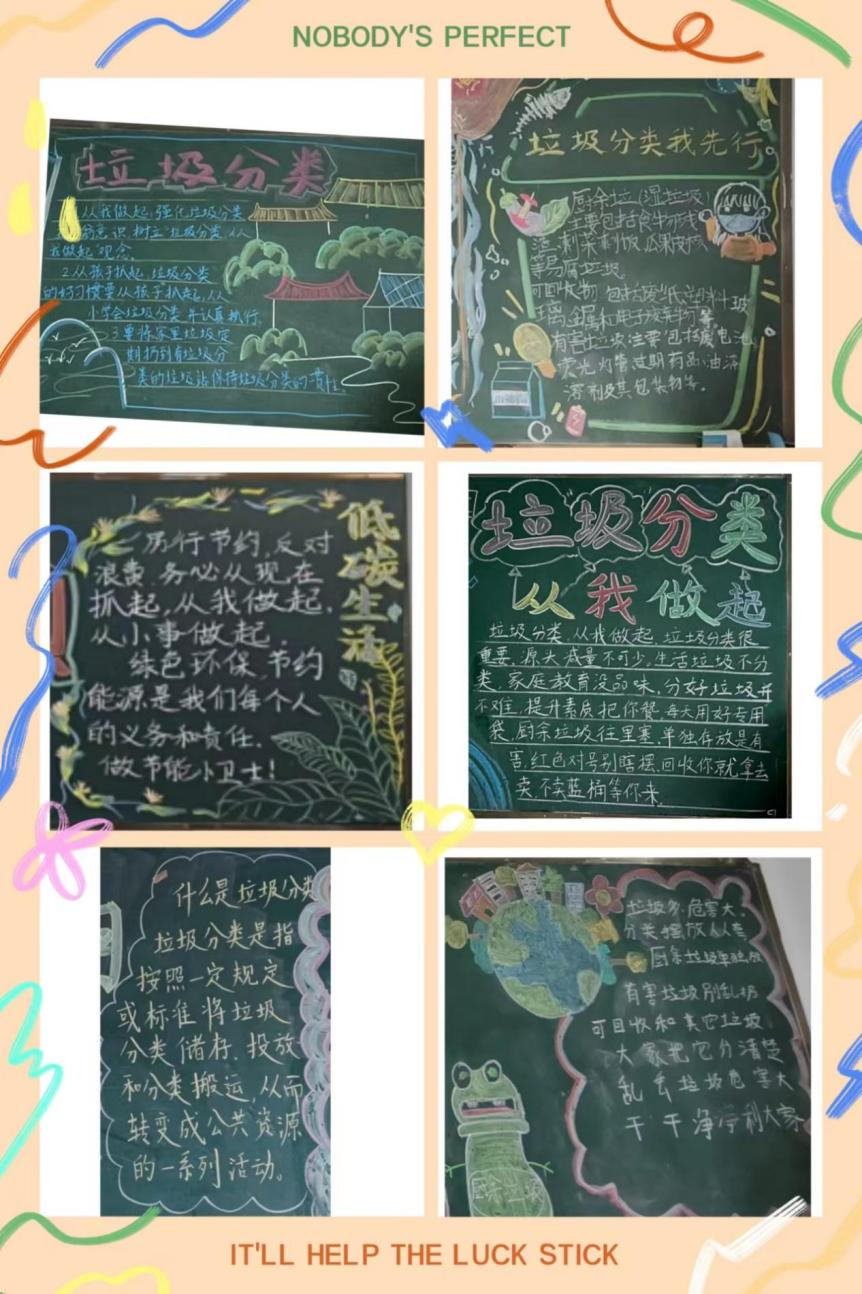 NOBODY'S PERFECT
垃圾分类
从我做起,强化垃圾分类
意识,树立"垃圾分类,从
我做起"观念。
2.从孩子抓起,垃圾分类
的好习惯要从孩子抓起,从
小学会垃圾分类并认真执行。
3.要将家里垃圾定
期扔到有垃圾分
类的垃圾站保持垃圾分类的习惯性。
垃圾分类我先行
厨余垃(湿垃圾)
主要包括食物残
渣,剩菜剩饭,瓜果
等易腐垃圾。
可回收物,包括废纸,塑料,玻
璃,金属和电子废弃物等。
有害垃圾主要包括废电池,
荧光灯管,过期药品,油漆
溶剂及其包装物等。
低碳生活
厉行节约,反对
浪费,务必从现在
抓起,从我做起,
从小事做起。
绿色环保,节约
能源是我们每个人
的义务和责任。
做节能小卫士!
垃圾分类
从我做起
垃圾分类,从我做起,垃圾分类很
重要,源头减量不可少,生活垃圾不分
类,家庭教育没品味,分好垃圾并
不难,提升素质把你餐,每天用好专用
袋,厨余垃圾往里塞,单独存放是有
害,红色对号别瞎摆,回收你就拿去
卖,不卖蓝桶等你来。
什么是垃圾分类
垃圾分类是指
按照一定规定
或标准将垃圾
分类储存、投放
和分类搬运,从而
转变成公共资源
的一系列活动。
垃圾多,危害大。
分类摆放人人夸
厨余垃圾单独放
有害垃圾别乱扔
可回收和其它垃圾
大家把它分清楚
乱丢垃圾危害大
干干净净利大家
厨余垃圾
IT'LL HELP THE LUCK STICK